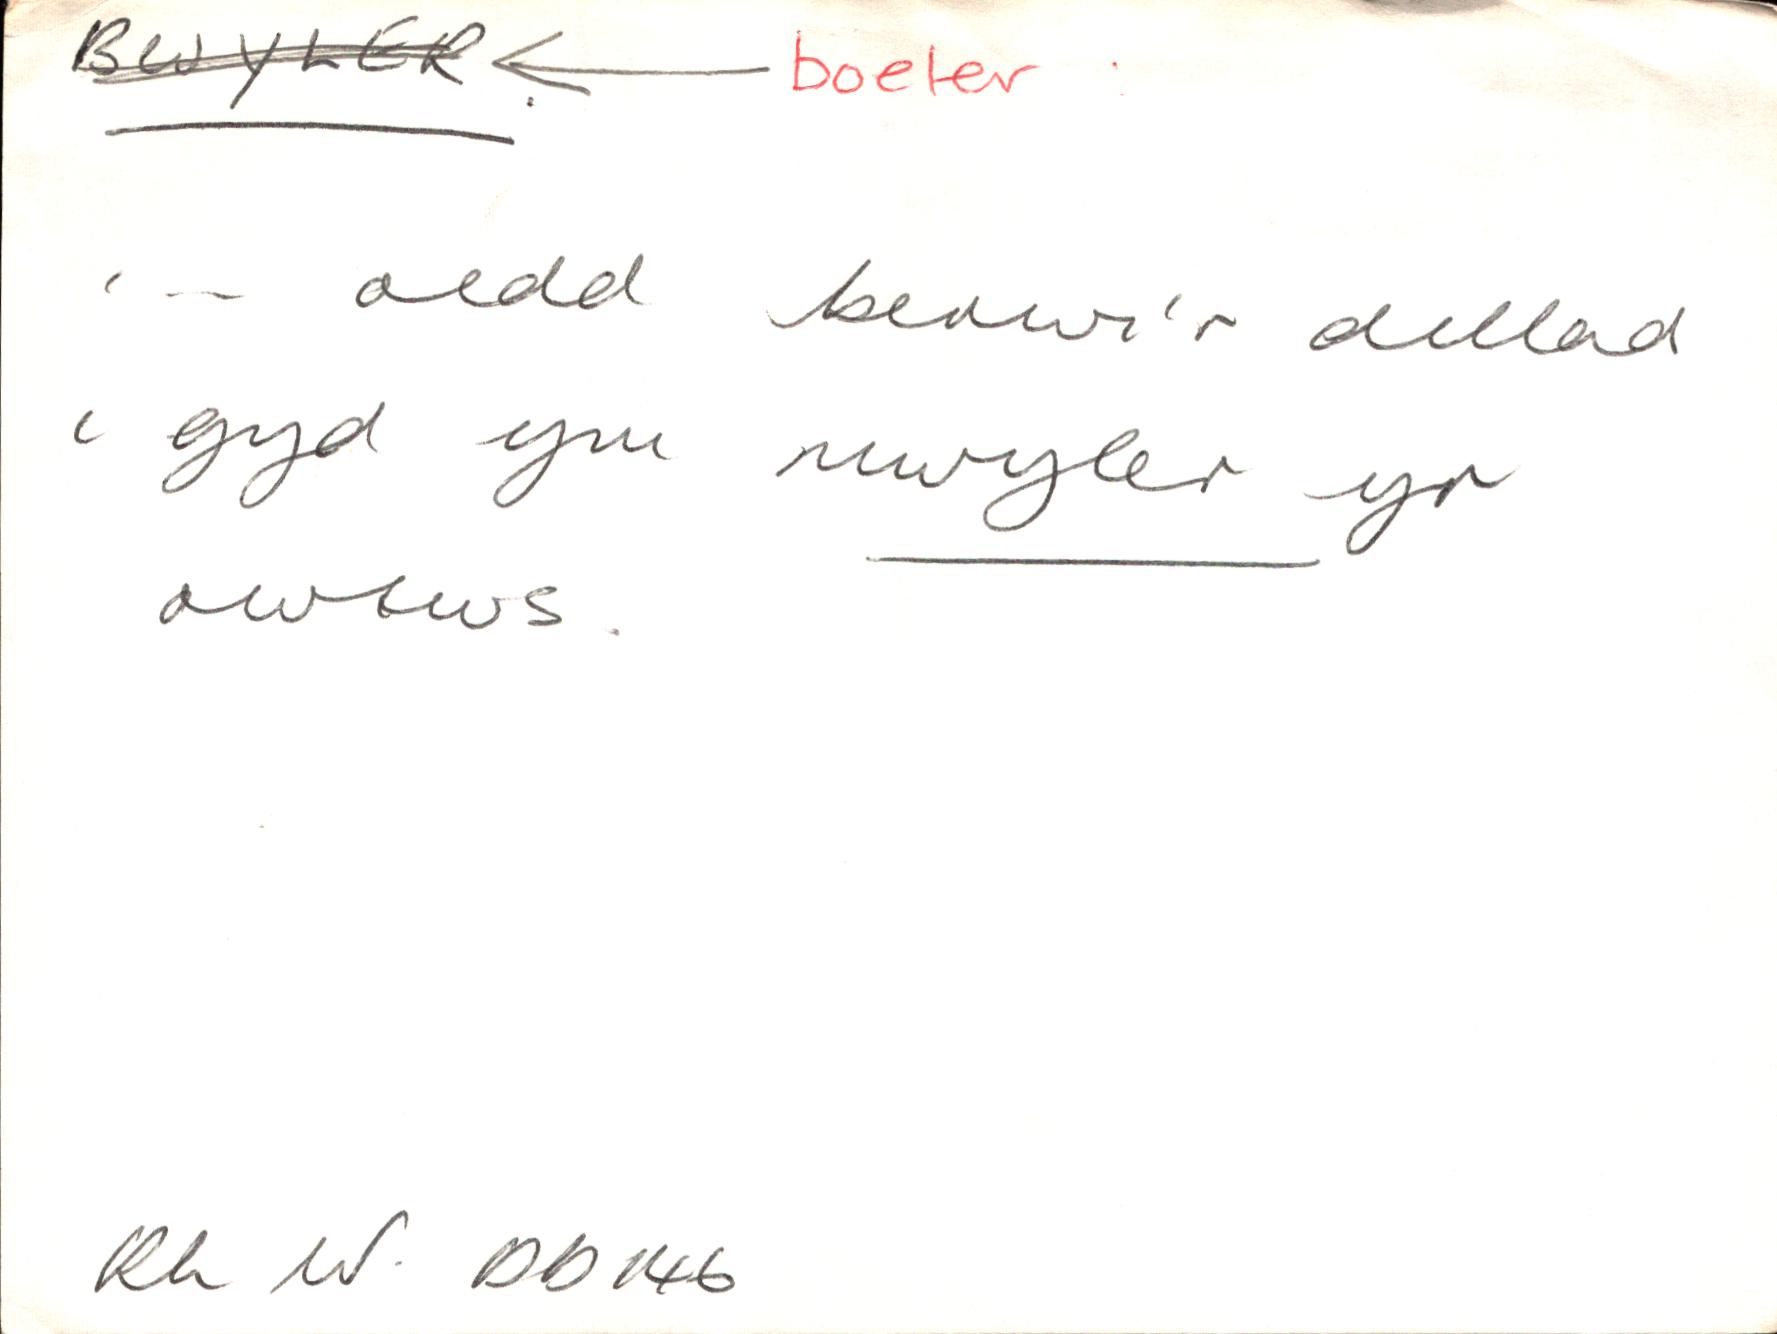 BWYLER ← boeler
' — oedd berwi'r dillad
i gyd ym mwyler yr
owtws.
Rh W. DD 146